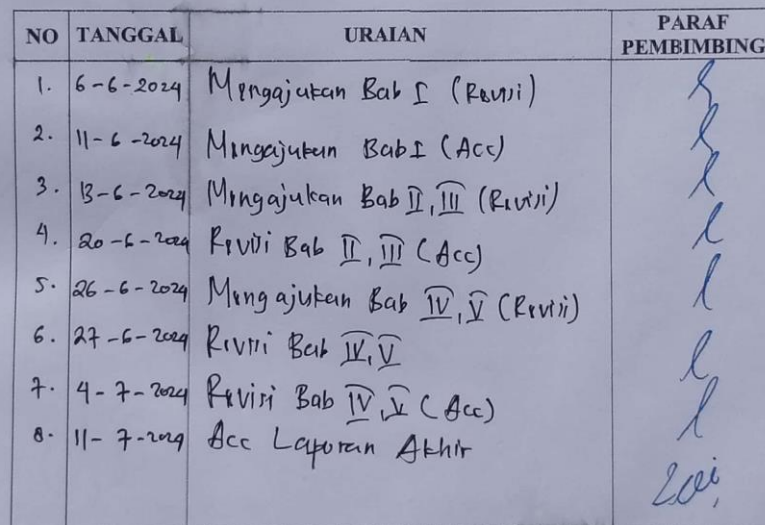 NO TANGGAL URAIAN PARAF PEMBIMBING
1. 6-6-2024 Mengajukan Bab I (Revisi)
2. 11-6-2024 Mengajukan Bab I (Acc)
3. 13-6-2024 Mengajukan Bab II, III (Revisi)
4. 20-6-2024 Revisi Bab II, III (Acc)
5. 26-6-2024 Mengajukan Bab IV, V (Revisi)
6. 27-6-2024 Revisi Bab IV, V
7. 4-7-2024 Revisi Bab IV, V (Acc)
8. 11-7-2024 Acc Laporan Akhir